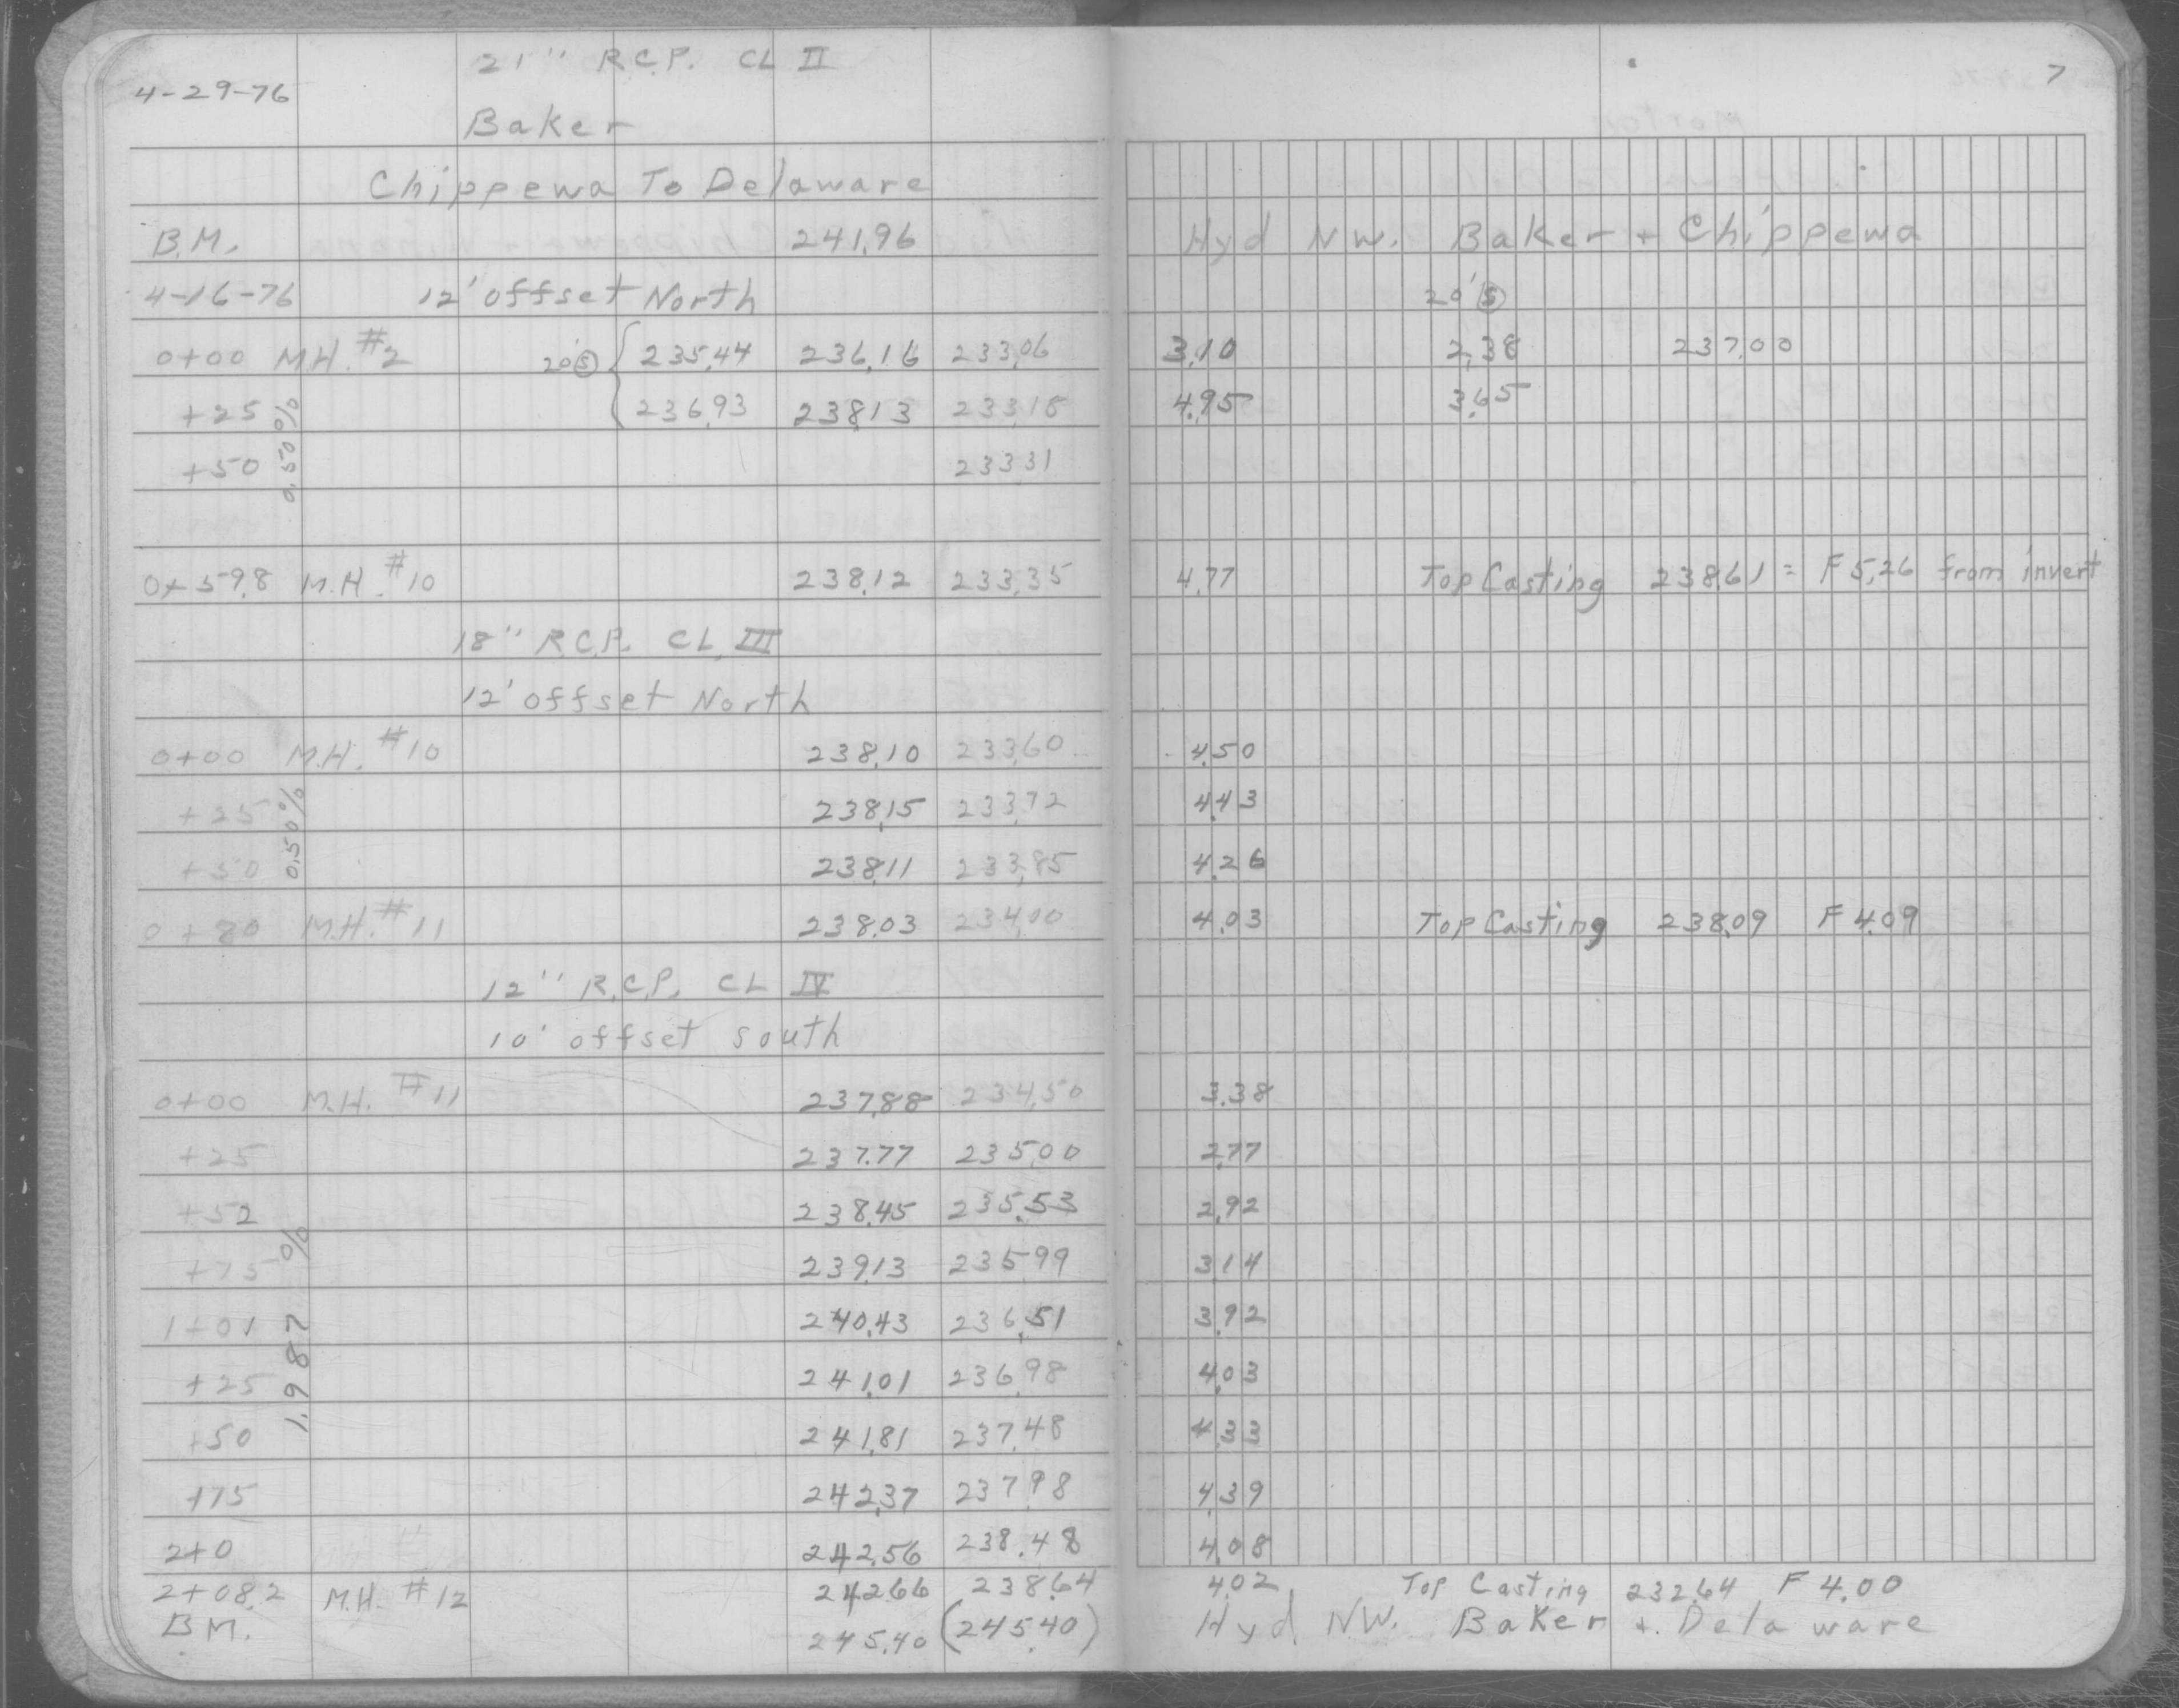 21" R.C.P. CL II
7
4-29-76
Baker
Chippewa To Delaware
B.M. 241.96 Hyd NW. Baker + Chippewa
4-16-76 12' offset North 20' S
0+00 M.H. #2 20' S { 235.44 236.16 233.06 3.10 2.38 237.00
+25 236.93 238.13 233.18 4.95 3.65
+50 233.31
0.50%
0+59.8 M.H. #10 238.12 233.35 4.77 Top Casting 238.61 = F 5.26 from invert
18" R.C.P. CL III
12' offset North
0+00 M.H. #10 238.10 233.60 4.50
+25 238.15 233.72 4.43
+50 238.11 233.85 4.26
0.50%
0+80 M.H. #11 238.03 234.00 4.03 Top Casting 238.09 F 4.09
12" R.C.P. CL IV
10' offset south
0+00 M.H. #11 237.88 234.50 3.38
+25 237.77 235.00 2.77
+52 238.45 235.53 2.92
+75 239.13 235.99 3.14
1+01 240.43 236.51 3.92
1.987 %
+25 241.01 236.98 4.03
+50 241.81 237.48 4.33
+75 242.37 237.98 4.39
2+0 242.56 238.48 4.08
2+08.2 M.H. #12 242.66 238.64 4.02 Top Casting 232.64 F 4.00
B.M. 245.40 (245.40) Hyd NW. Baker + Delaware